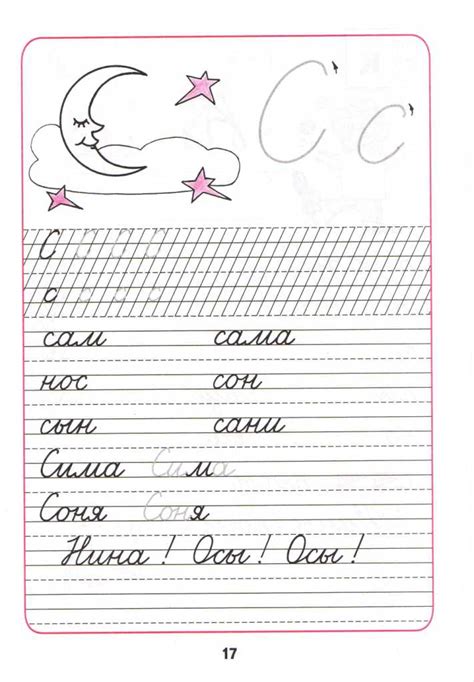 С с
С С С С
с с с с
сам сама
нос сон
сын сани
Сима Сима
Соня Соня
Нина! Осы! Осы!
17